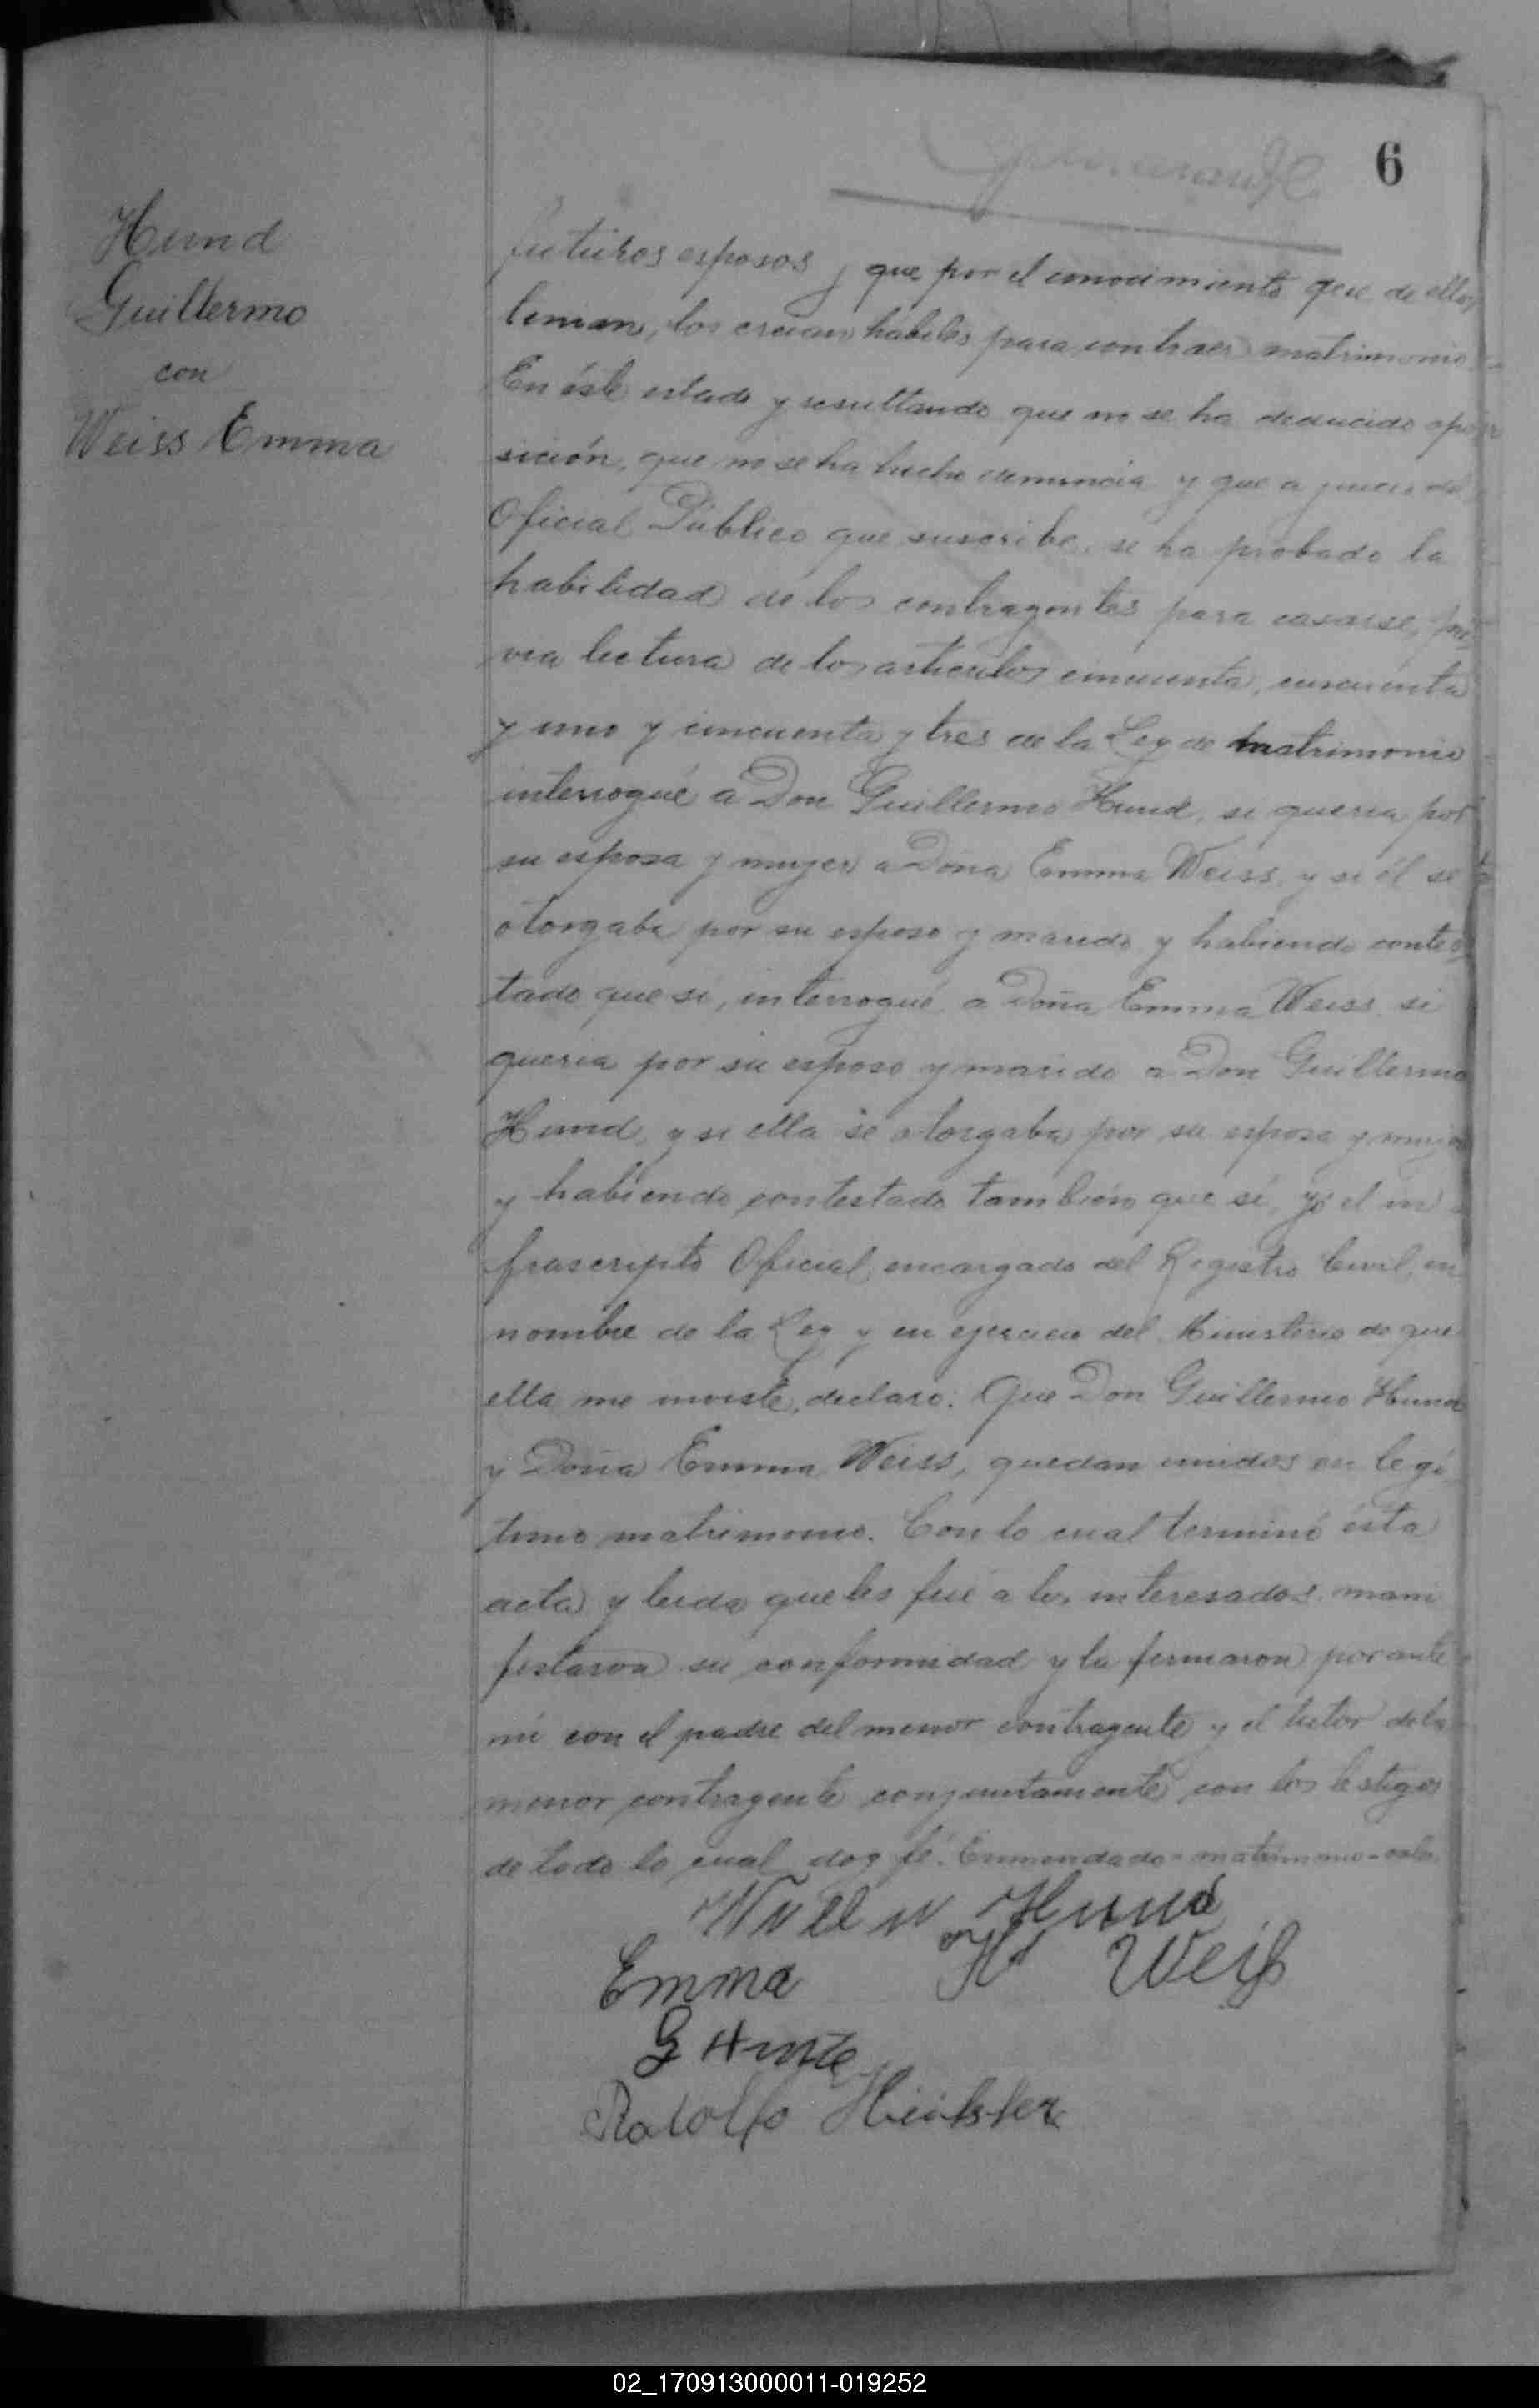 6
Hund
Guillermo
con
Weiss Emma
futuros esposos y que por el conocimiento que de ellos
tenian, los creian hábiles para contraer matrimonio.
En éste estado y resultando que no se ha deducido opo
sición, que no se ha hecho denuncia y que a juicio del
Oficial Público que suscribe, se ha probado la
habilidad de los contrayentes para casarse, pré
via lectura de los articulos cincuenta, cincuenta
y uno y cincuenta y tres de la Ley de matrimonio
interrogué a Don Guillermo Hund, si queria por
su esposa y mujer a Doña Emma Weiss, y si él se
otorgaba por su esposo y marido y habiendo contes
tado que si, interrogué a Doña Emma Weiss si
queria por su esposo y marido a Don Guillermo
Hund, y si ella se otorgaba por su esposa y mujer
y habiendo contestado también que si, yo el in
frascripto Oficial encargado del Registro Civil, en
nombre de la Ley y en ejercicio del Ministerio de que
ella me inviste, declaro: Que Don Guillermo Hund
y Doña Emma Weiss, quedan unidos en legi
timo matrimonio. Con lo cual terminó ésta
acta y leida que les fué a los interesados, mani
festaron su conformidad y la firmaron por ante
mi con el padre del menor contrayente y el tutor de la
menor contrayente conjuntamente con los testigos
de todo lo cual doy fé. Enmendado-matrimonio-vale
Hund
Emma Weiß
G
Rodolfo
02_170913000011-019252